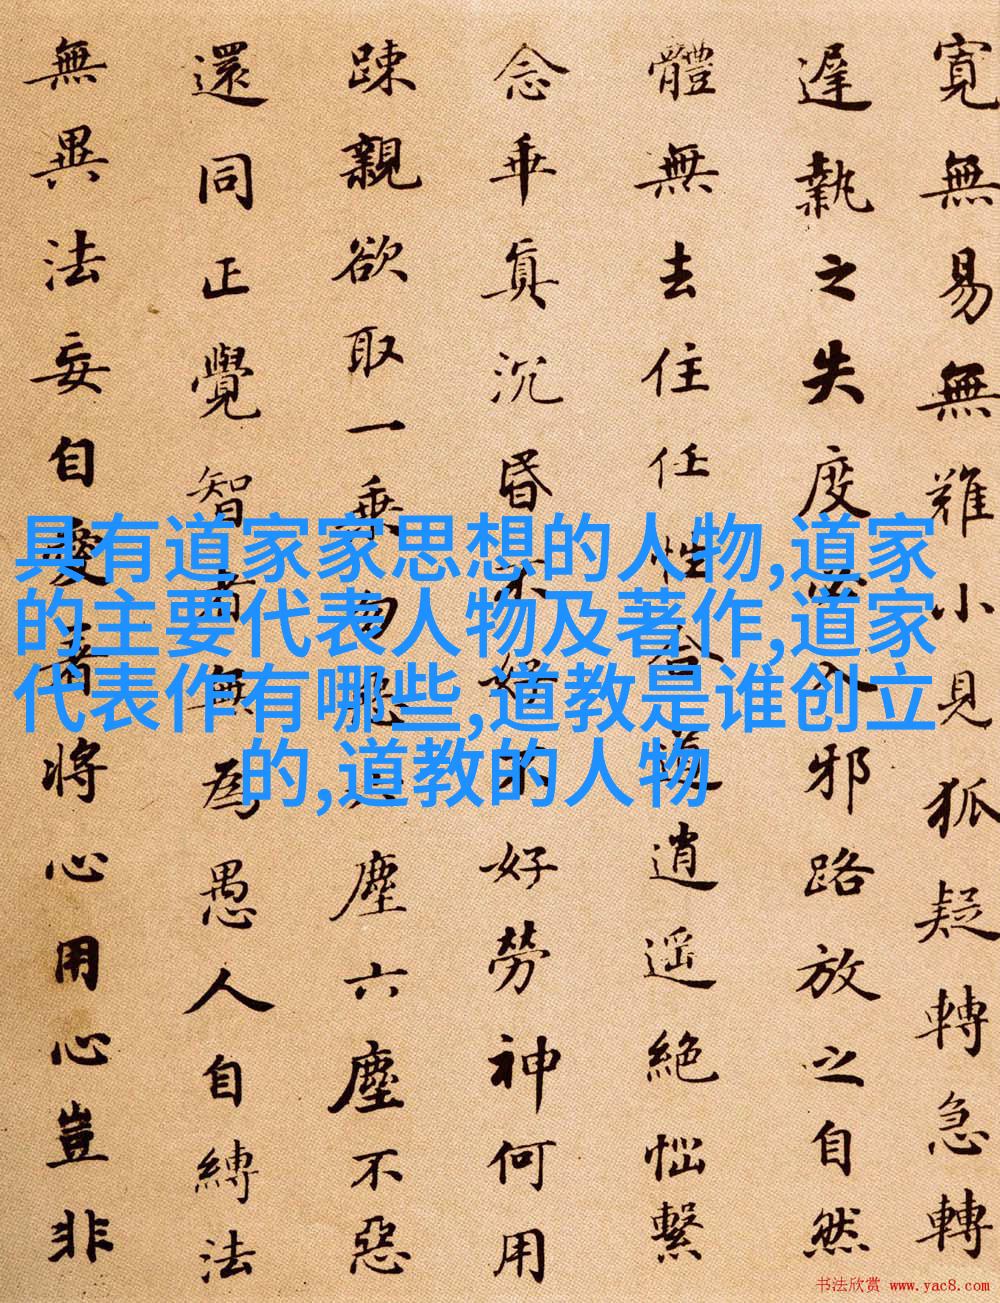 寛無易無難小見狐疑轉急轉
遲執之失度必入邪路放之自然
體無去住任性合道逍遥絕惱繫
念乖真沉昏不好不好勞神何用
踈親欲取一乘勿惡六塵六塵不惡
還同正覺智者無為愚人自縛法
無異法妄自愛著將心用心豈非
具有道家家思想的人物,道家
的主要代表人物及著作,道家
代表作有哪些,道教是谁创立
的,道教的人物
书法欣赏 www.yac8.com